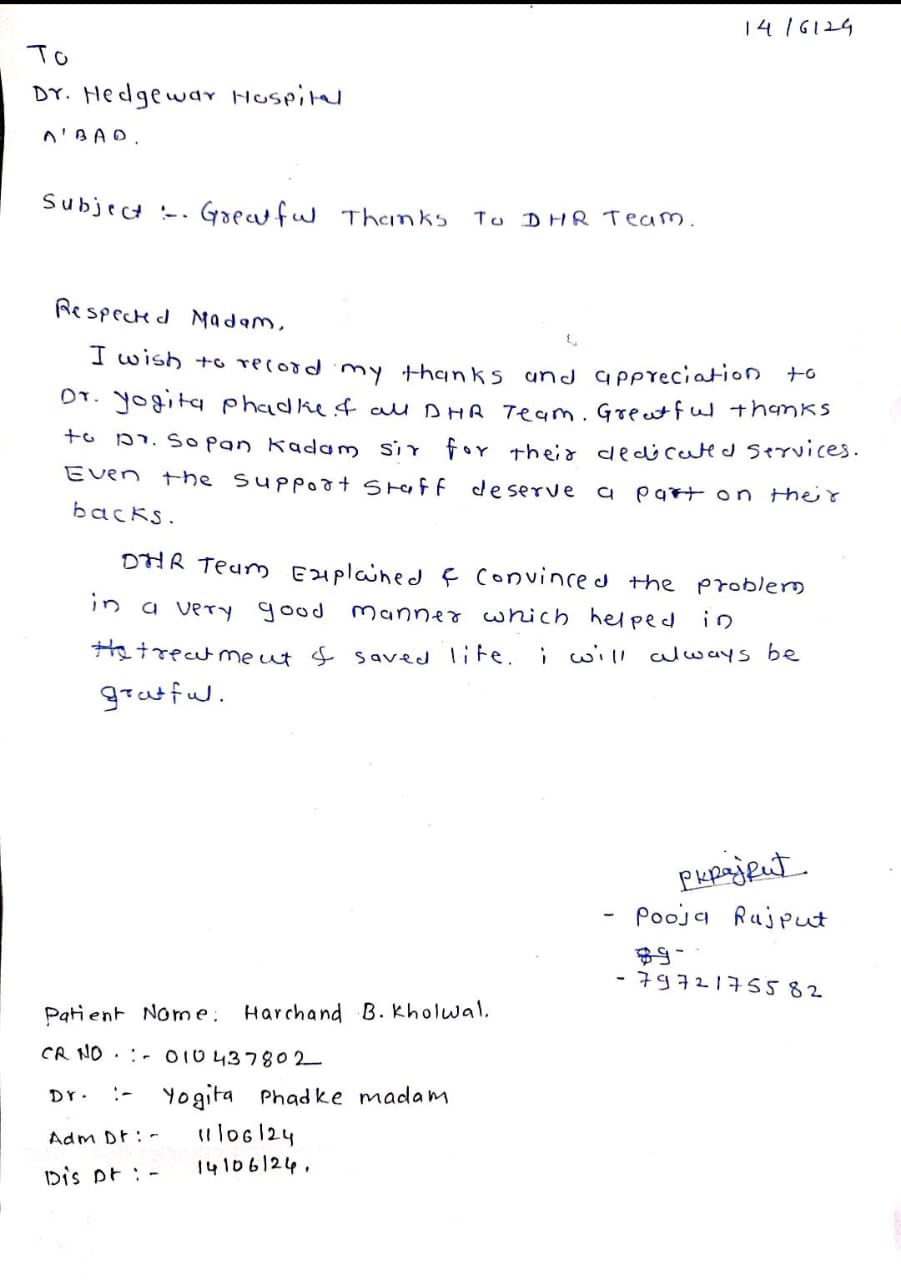 14/6/24
To
Dr. Hedgewar Hospital
A'BAD.
Subject :-. Greatful Thanks To DHR Team.
Respected Madam,
I wish to record my thanks and appreciation to
Dr. Yogita phadke & all DHR Team. Greatful thanks
to Dr. Sopan Kadam Sir for their dedicated services.
Even the support staff deserve a part on their
backs.
DHR Team Explained & Convinced the problem
in a very good manner which helped in
treatment & saved life. i will always be
gratful.
PKRajput
- Pooja Rajput
- 7972175582
Patient Name: Harchand B. Kholwal.
CR NO. :- 010437802
Dr. :- Yogita Phadke madam
Adm Dt :- 11/06/24
Dis Dt :- 14/06/24.